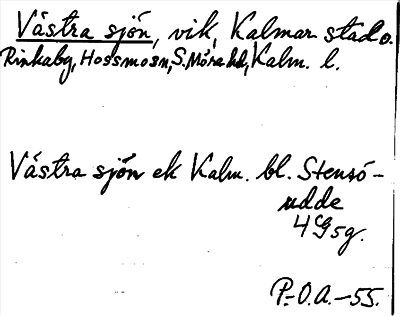 Västra sjön, vik, Kalmar stad o.
Rinkabg, Hossmosn, S. Möre hd, Kalm. l.
Västra sjön ek Kalm. bl. Stensö-
udde
4G5g.
P.-O.A.-55.